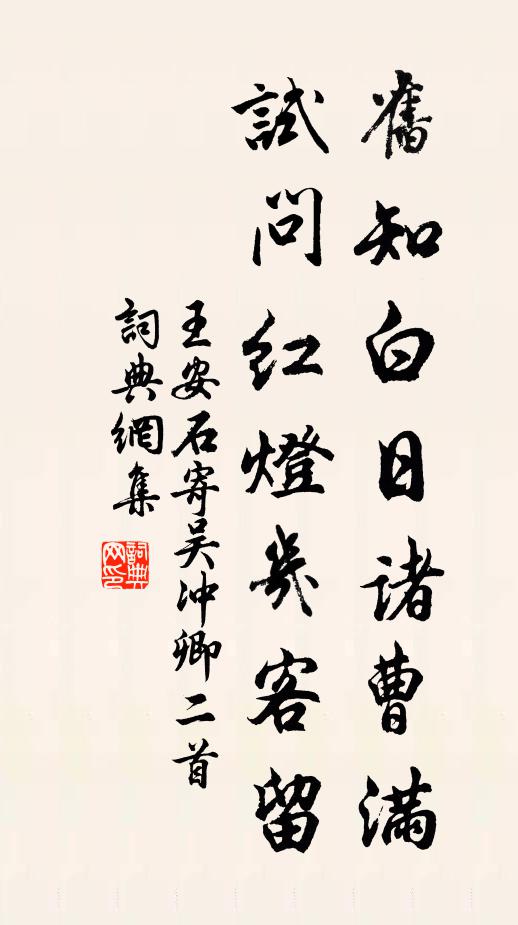 舊知白日諸曹滿
試問紅燈幾客留
王安石寄吴冲卿二首
詞典網集
詞典网印